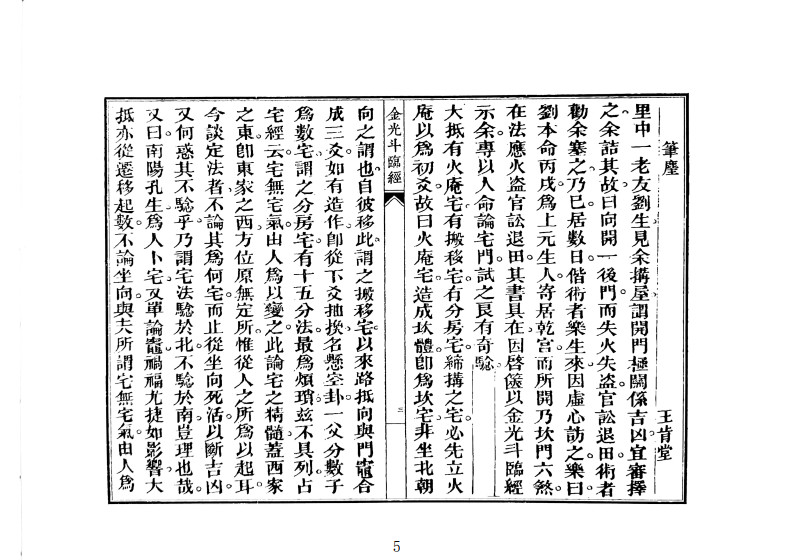 筆麈
王肯堂
里中一老友劉生見余搆屋謂開門極關係吉凶宜審擇
之余詰其故曰向開一後門而失火失盜官訟退田術者
勸余塞之乃已居數日偕術者樂生來因虛心訪之樂曰
劉本命丙戌爲上元生人寄居乾宮而所開乃坎門六煞
在法應火盜官訟退田其書具在因啓篋以金光斗臨經
示余專以人命論宅門試之良有奇驗
大抵有火庵宅有搬移宅有分房宅締搆之宅必先立火
庵以爲初爻故曰火庵宅造成坎體卽爲坎宅非坐北朝
金光斗臨經
二
向之謂也自彼移此謂之搬移宅以來路抵向與門竈合
成三爻如有造作卽從下爻抽換名懸空卦一父分數子
爲數宅謂之分房宅有十五分法最爲煩瑣茲不具列占
宅經云宅無宅氣由人爲以變之此論宅之精髓蓋西家
之東卽東家之西方位原無定所惟從人之所爲以起耳
今談定法者不論其爲何宅而止從坐向死活以斷吉凶
又何惑其不驗乎乃謂宅法驗於北不驗於南豈理也哉
又曰南陽孔生爲人卜宅又單論竈禍福尤捷如影響大
抵亦從遷移起數不論坐向與夫所謂宅無宅氣由人爲
5